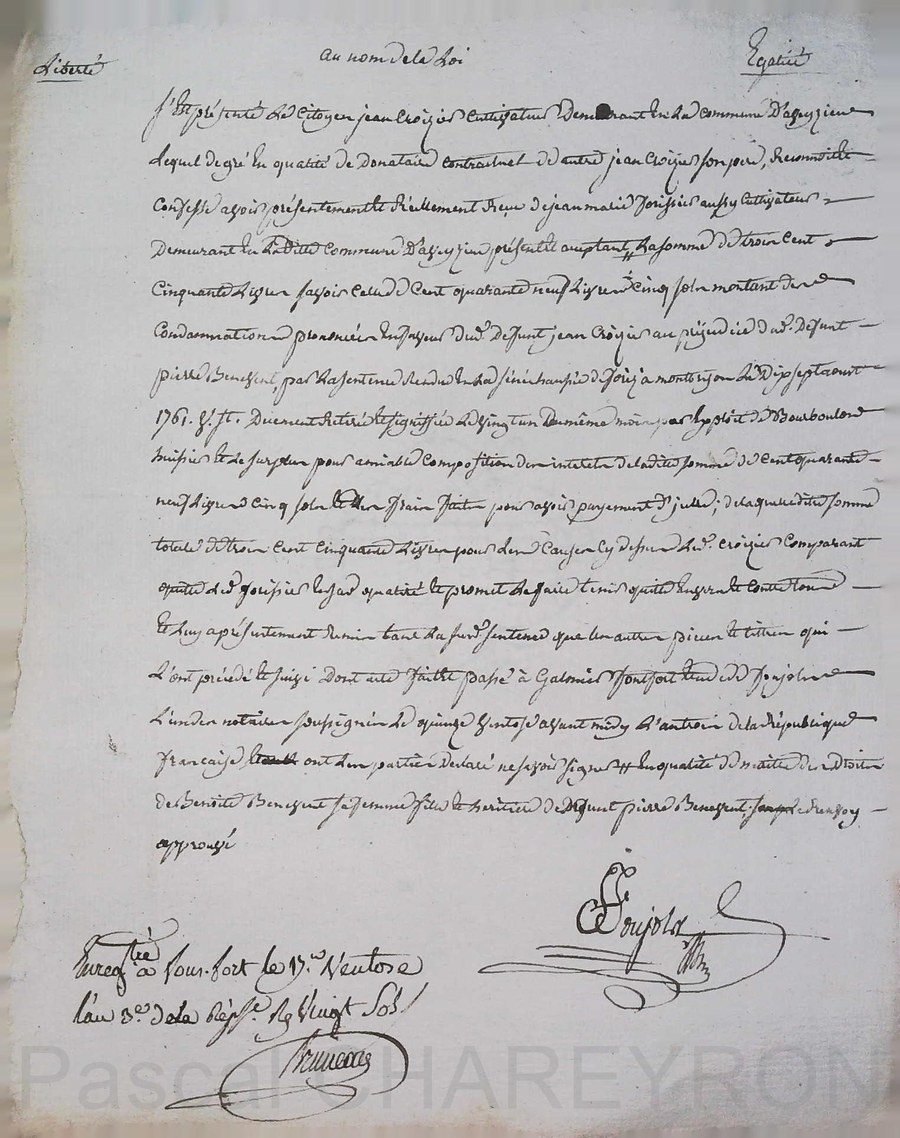 Liberté
au nom de la Loi
Egalité
S'Est présenté Le Citoyen jean Croizier Cultivateur Demeurant En La Commune D'aveyzieu
Lequel de gré En qualité de Donataire Contractuel de autre jean Croizier Son père, Reconnoit et
Confesse avoir présentement et Réellement Reçu de jean marie Jorissier aussy Cultivateur
Demeurant En Laditte Commune D'aveyzieu présent et acceptant La Somme de trois Cent
Cinquante Livres savoir Celle de Cent quarante neuf Livres Cinq sols montant des
Condamnations prononcées En faveur dud. Deffunt jean Croizier au préjudice dud. Deffunt
pierre Benevent, par La Sentence Rendue En La sénéchaussée de forez a montbrison Le Dix sept aout
1761. Duement Retiré et signiffiée Le vingt un Du même mois par Exploit de Bourboulon
huissier et Le surplus pour amiable Composition des interets de ladite somme de Cent quarante
neuf Livres Cinq sols et les frais faits pour avoir payement d'jcelle; de laquelle ditte somme
totale de trois Cent Cinquante Livres pour les Causes Cy dessus Led. Croizier Comparant
quitte Led. Jorissier En sad. qualité et promet Le faire tenir quitte Envers et Contre tous
et Luy a présentement Remis tant La susd. sentence que les autres pieces et titres qui
L'ont précédé et suivi Dont acte fait et passé à Galmier Fontfort Etude de Poujols
L'un des notaires soussignés Le quinze ventose avant midy L'an trois de la République
française ont Les parties Declaré ne savoir signer # En qualité de maitre des Droits
de Benoite Benevent sa femme fille et heritiere de Deffunt pierre Benevent, Le Renvoy
approuvé
Poujols
Enreg.tré à fons-fort le 17.e Ventose
l'an 3.e de la Rép.e R Vingt Sols
Pascal CHAREYRON